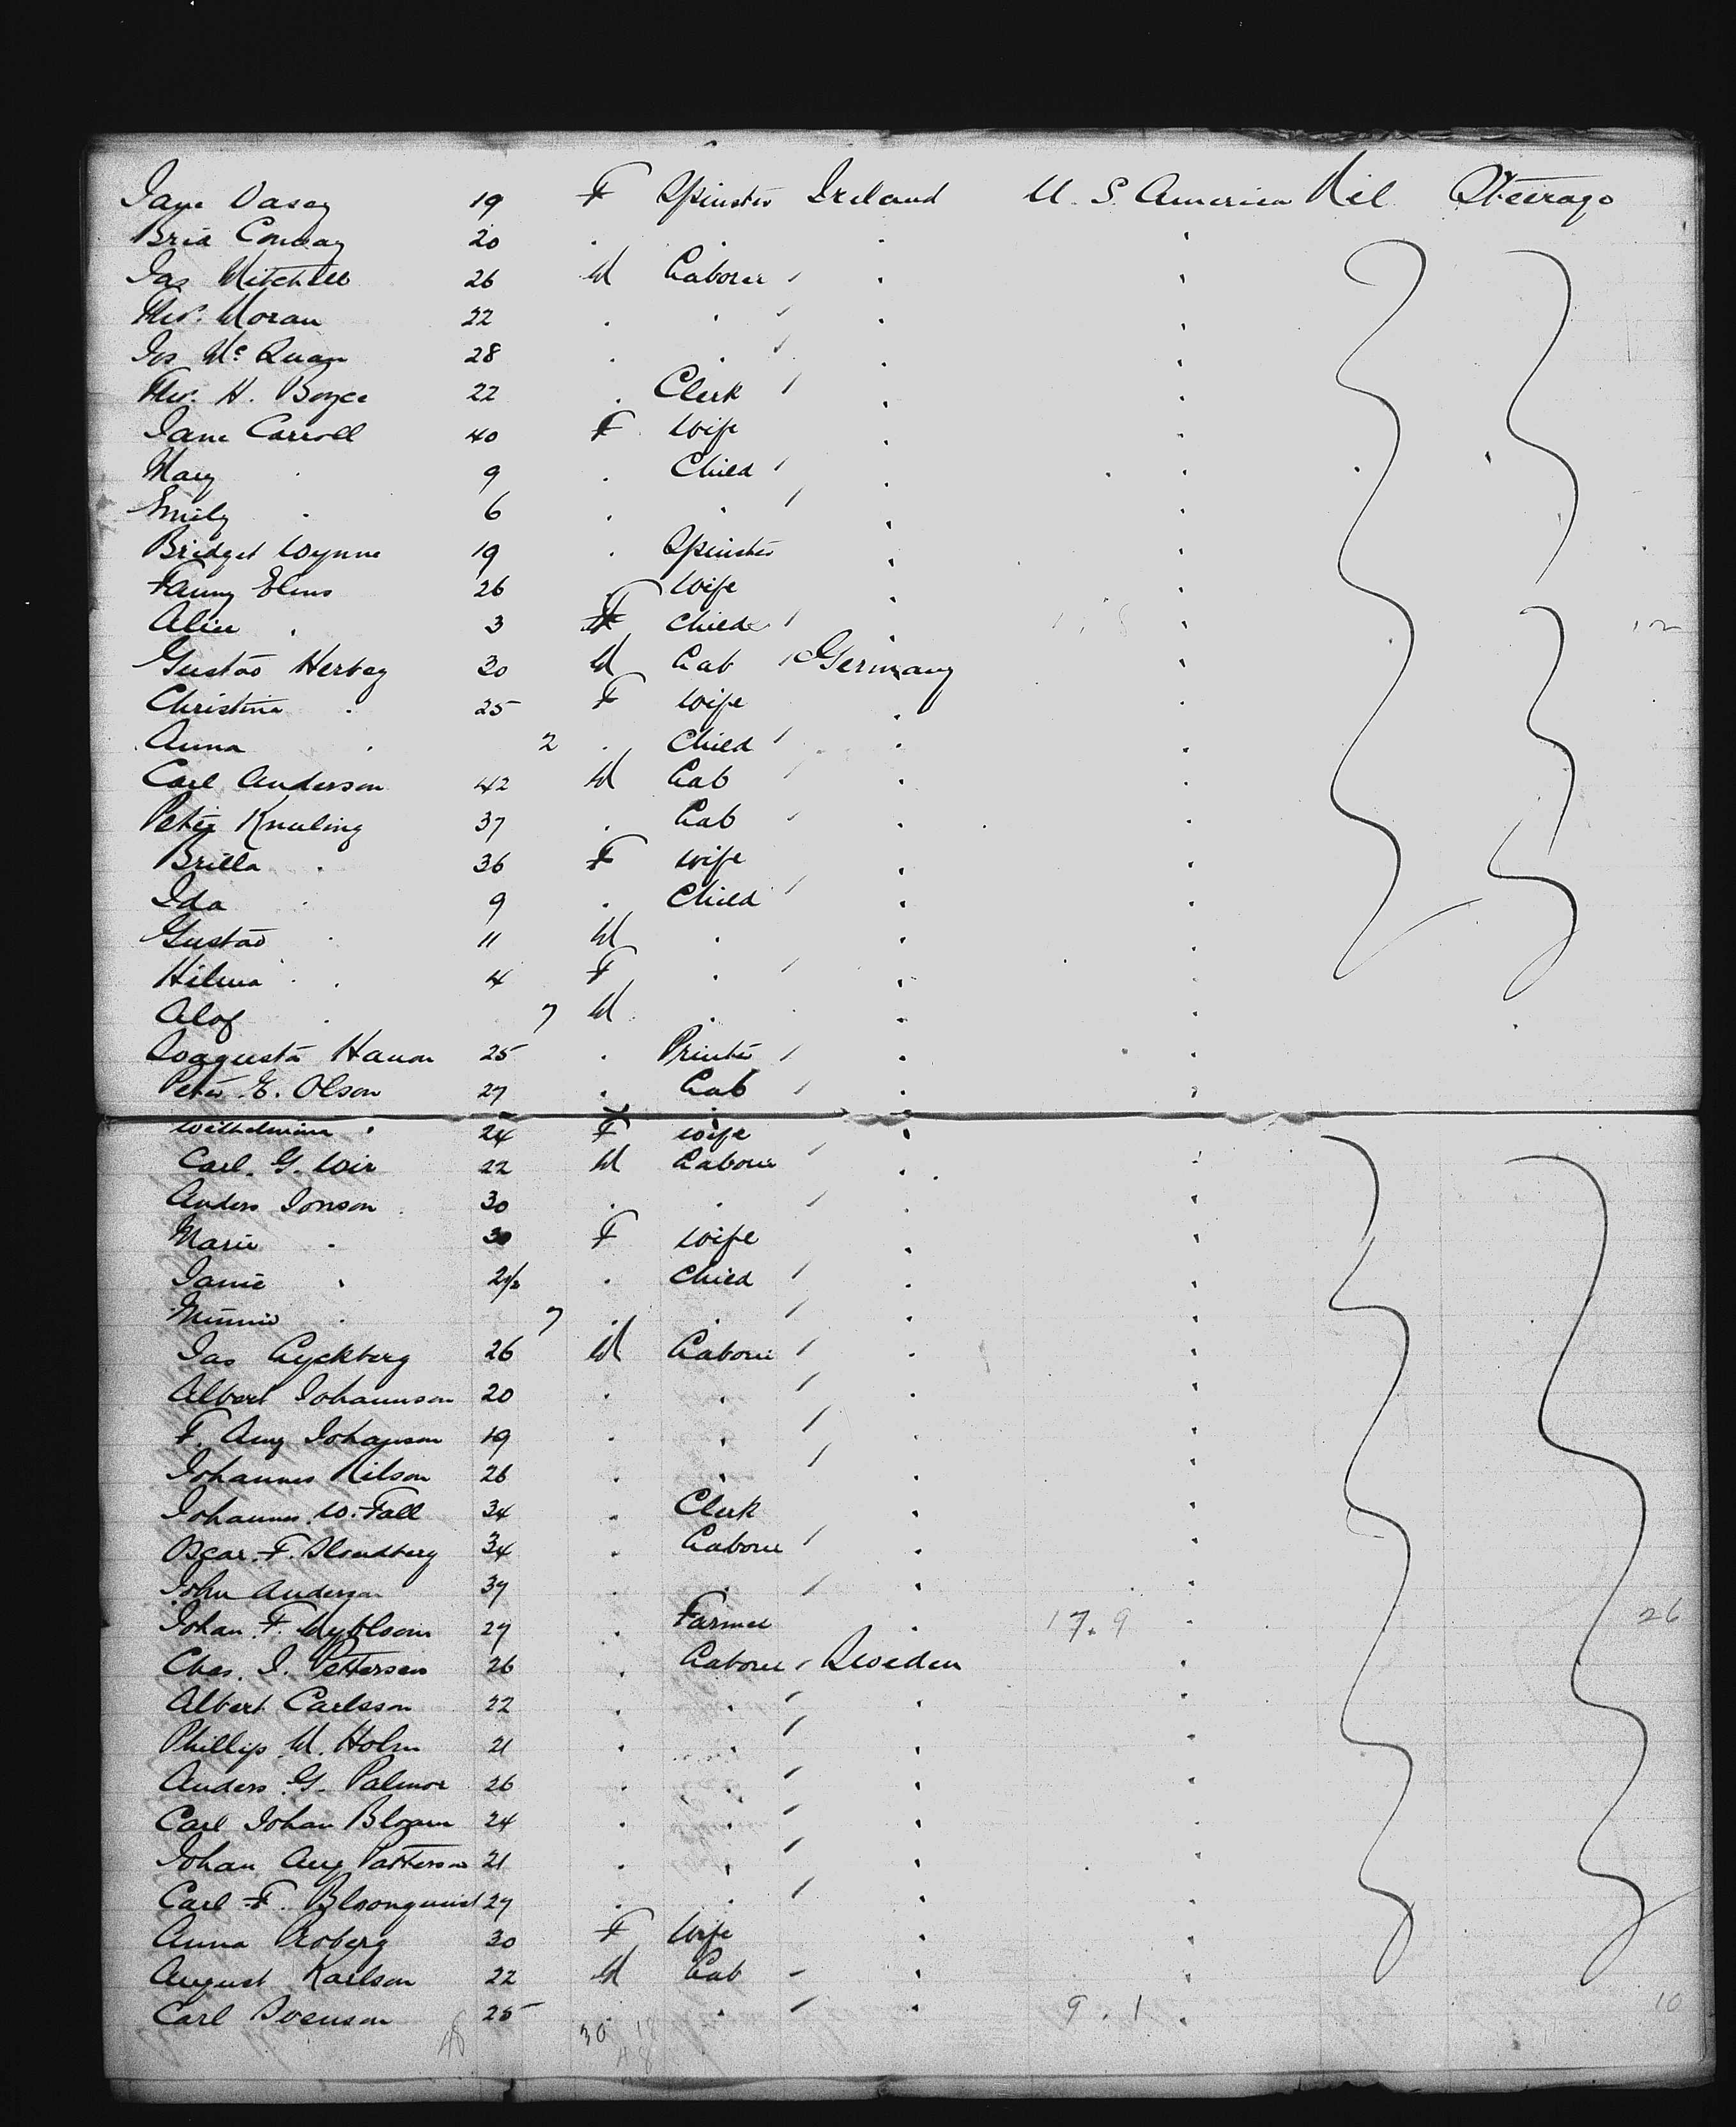 Jane Vasey 19 F Spinster Ireland U. S. America Nil Steerage
Brid Conway 20 . . . .
Jas Mitchell 26 M Laborer . .
Thos. Moran 22 . . . .
Jos Mc Quan 28 . . . .
Thos. H. Boyce 22 . Clerk . .
Jane Carroll 40 F Wife . .
Mary . 9 . Child . .
Emily . 6 . . . .
Bridget Wynne 19 . Spinster . .
Fanny Elms 26 . Wife . .
Alice . 3 F Child . . 12
Gustav Herbeg 30 M Lab Germany .
Christine . 25 F Wife . .
Anna . 2 . Child . .
Carl Anderson 42 M Lab . .
Peter Knuling 37 . Lab . .
Brilla . 36 F Wife . .
Ida . 9 . Child . .
Gustav . 11 M . . .
Hilma . 4 F . . .
Alof . 7 M . . .
Hanon 25 . Printer . .
Peter E. Olson 27 . Lab . .
Wilhelmina . 24 F Wife . .
Carl. G. Wir 22 M Laborer . .
Anders Jonson 30 . . . .
Marie . 30 F Wife . .
Janie . 2½ . Child . .
Minnie . 7 . . . .
Jas Lyckberg 26 M Laborer . .
Albert Johannson 20 . . . .
F. Aug Johanson 19 . . . .
Johannes Nilson 26 . . . .
Johannes W. Fall 34 . Clerk . .
Oscar. F. 34 . Laborer . .
John Anderson 37 . . . .
Johan. F. Nybloom 27 . Farmer . 17.9 . 26
Chas. J. Pettersen 26 . Laborer Sweden .
Albert Carlsson 22 . . . .
Phillip M. Holm 21 . . . .
Anders G. Palmor 26 . . . .
Carl Johan Bloam 24 . . . .
Johan Aug Patterson 21 . . . .
Carl F. Bloonquist 27 . . . .
Anna Broberg 30 F Wife . .
August Karlson 22 M Lab . .
Carl Svenson 25 . . . 9.1 . 10
48 30 18
48